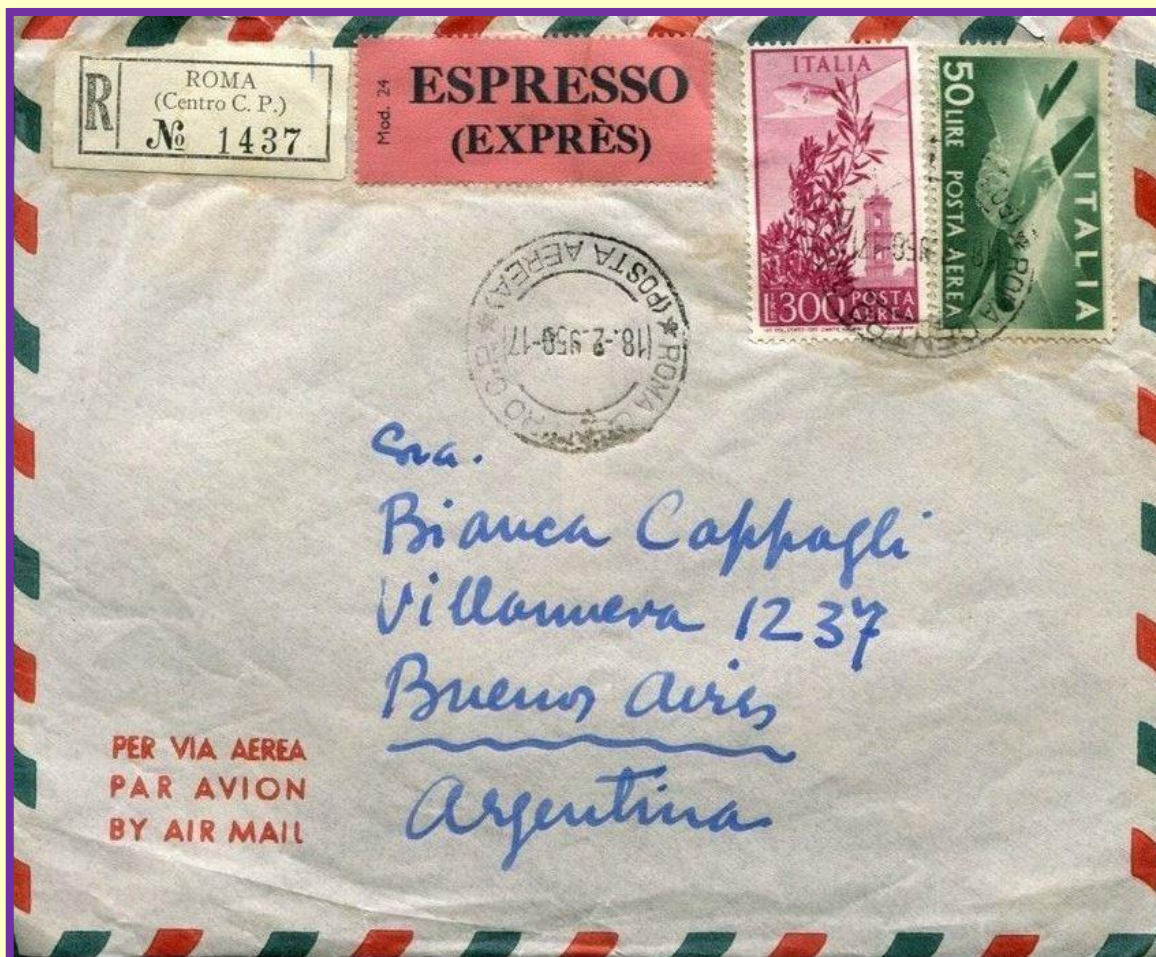 R
ROMA
(Centro C. P.)
№ 1437
Mod. 24
ESPRESSO
(EXPRÈS)
ITALIA
LIRE 300 POSTA
AEREA
50 LIRE POSTA AEREA
ITALIA
ROMA CENTRO
ROMA CENTRO C.P.
(POSTA AEREA)
18.-2.950-17
Sra.
Bianca Cappagli
Villanueva 1237
Buenos Aires
Argentina
PER VIA AEREA
PAR AVION
BY AIR MAIL